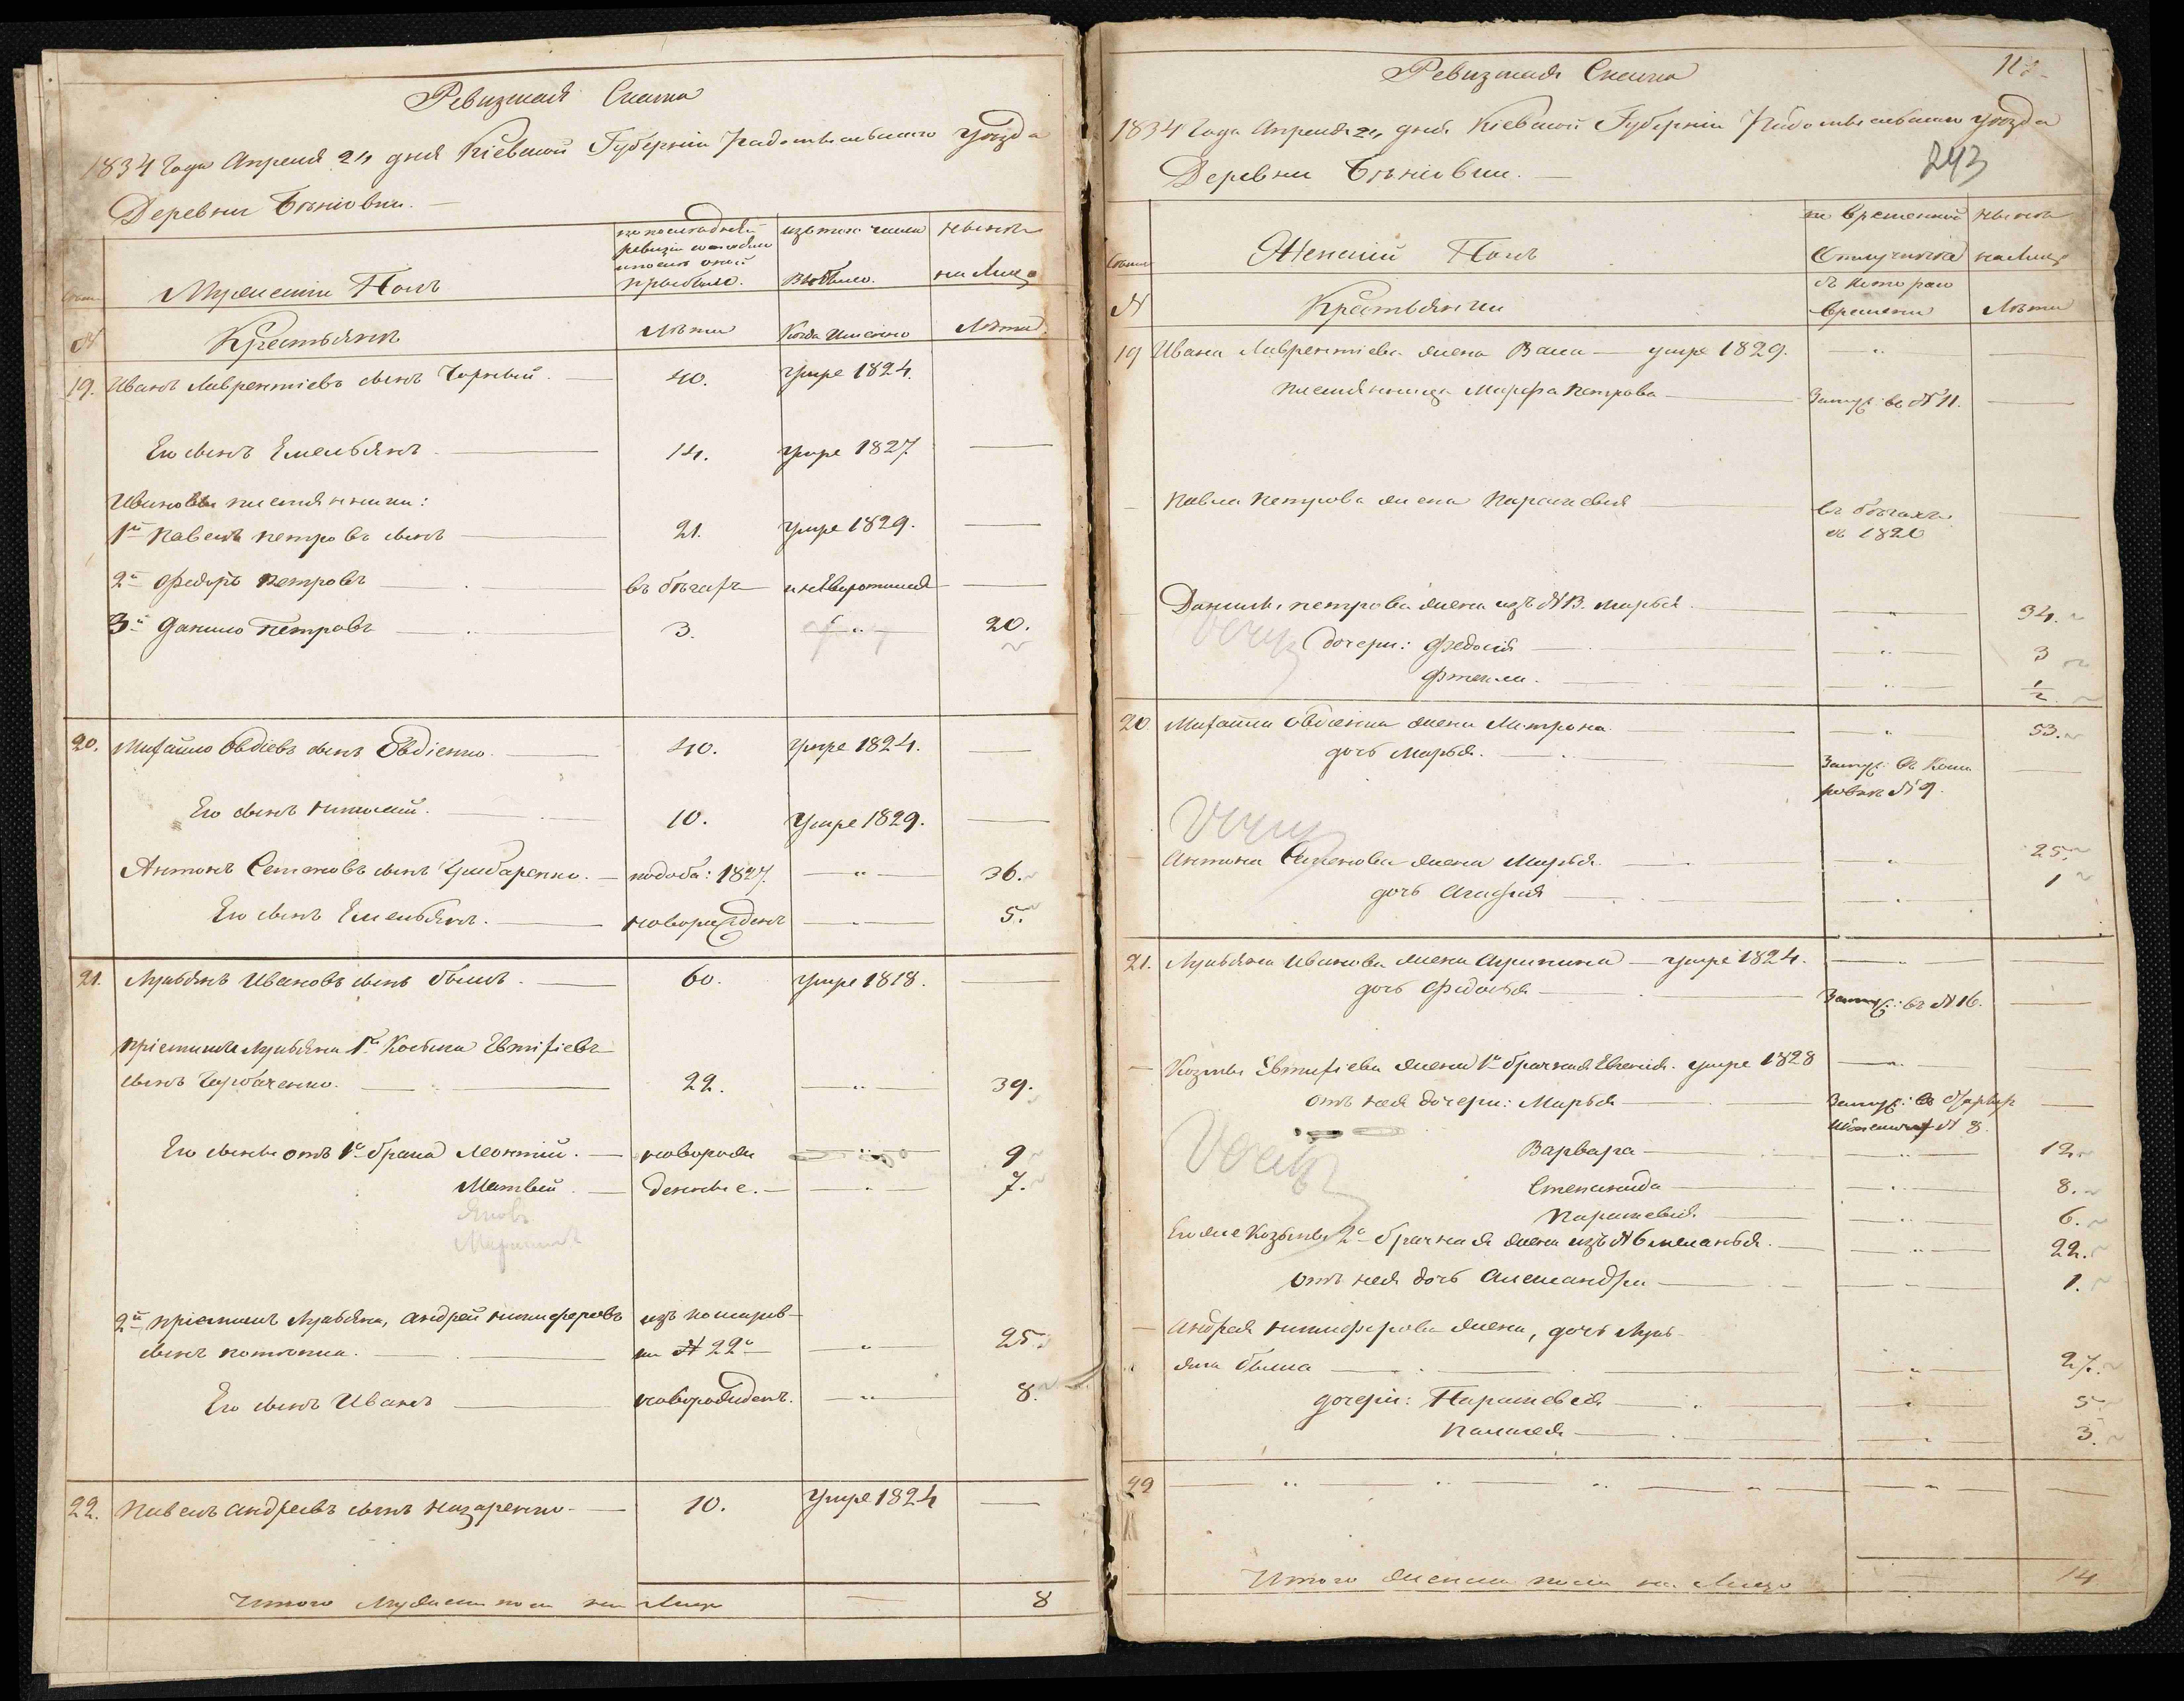 Ревизская Сказка
1834 Года Апреля 24 дня Кіевской Губерніи Радомысльскаго уѣзда
Деревни
по последней изъ того числа нынѣ
ревизіи состояло
и после оной
Мужескій Полъ прибыло. выбыло. на лице
№ Крестьянъ Лѣта Когда Именно Лѣта
19. Иванъ Лаврентіевъ сынъ Чорный 40. умре 1824.
Его сынъ Емельянъ 14. умре 1827
Ивановы племянники:
1й Павелъ Петровъ сынъ 21. умре 1829.
2й Федоръ Петровъ въ бѣгахъ
3й Данило Петровъ 3. 20.
20. Михайло Овдіевъ сынъ Овдіенко 40. умре 1824.
Его сынъ Николай 10. умре 1829.
Антонъ Семеновъ сынъ 1827. 36.
Его сынъ Емельянъ новорожденъ 5.
21. Лукьянъ Ивановъ сынъ 60. умре 1818.
Пріемышъ Лукьяна 1й Косьма Евтифіевъ
сынъ Горбаченко 22. 39.
Его сыны отъ 1го брака Леонтій новорож 9
Матвей денные 7.
Яковъ
2й пріемышъ Лукьяна, Андрей Никифоровъ изъ
сынъ № 22го 25
Его сынъ Иванъ новорожденъ. 8.
22. Павелъ Андреевъ сынъ Назаренко 10. умре 1824
Итого Мужеска пола на лице 8
Ревизская Сказка
1834 Года Апреля 24 дня Кіевской Губерніи Радомысльскаго уѣзда
243
Деревни
во временной нынѣ
Женскій Полъ отлучкѣ на лице
съ котораго
№ Крестьянки времени Лѣта
19 Ивана Лаврентіева жена умре 1829.
племянница Марфа Петрова Замуж: въ № 11.
Павла Петрова жена Параскевія въ бѣгахъ
съ 1820
Данилы Петрова жена изъ № 13. Марья 34.
дочери: Федосія 3
Фтекла 1/2
20 Михайла Овдіенка жена Матрона 53.
дочь Марья Замуж: въ
№ 9.
Антона Семенова жена Марья 25.
дочь Агафія 1
21. Лукьяна Иванова жена Агрипина умре 1824.
дочь Федосья Замуж: въ № 16.
Козмы Евтифіева жена 1о брачная Евгенія умре 1828
отъ нея дочери: Марья Замуж:
№ 8.
Варвара 12.
Степанида 8.
Параскевія 6.
Его же Козьмы 2о брачная жена изъ № 6 Меланья 22.
отъ нея дочь Александра 1.
Андрея Никифорова жена, дочь Лукь-
яна 27.
дочери: Параскевія 5
Палагея 3.
22
Итого женска пола на лицо 14